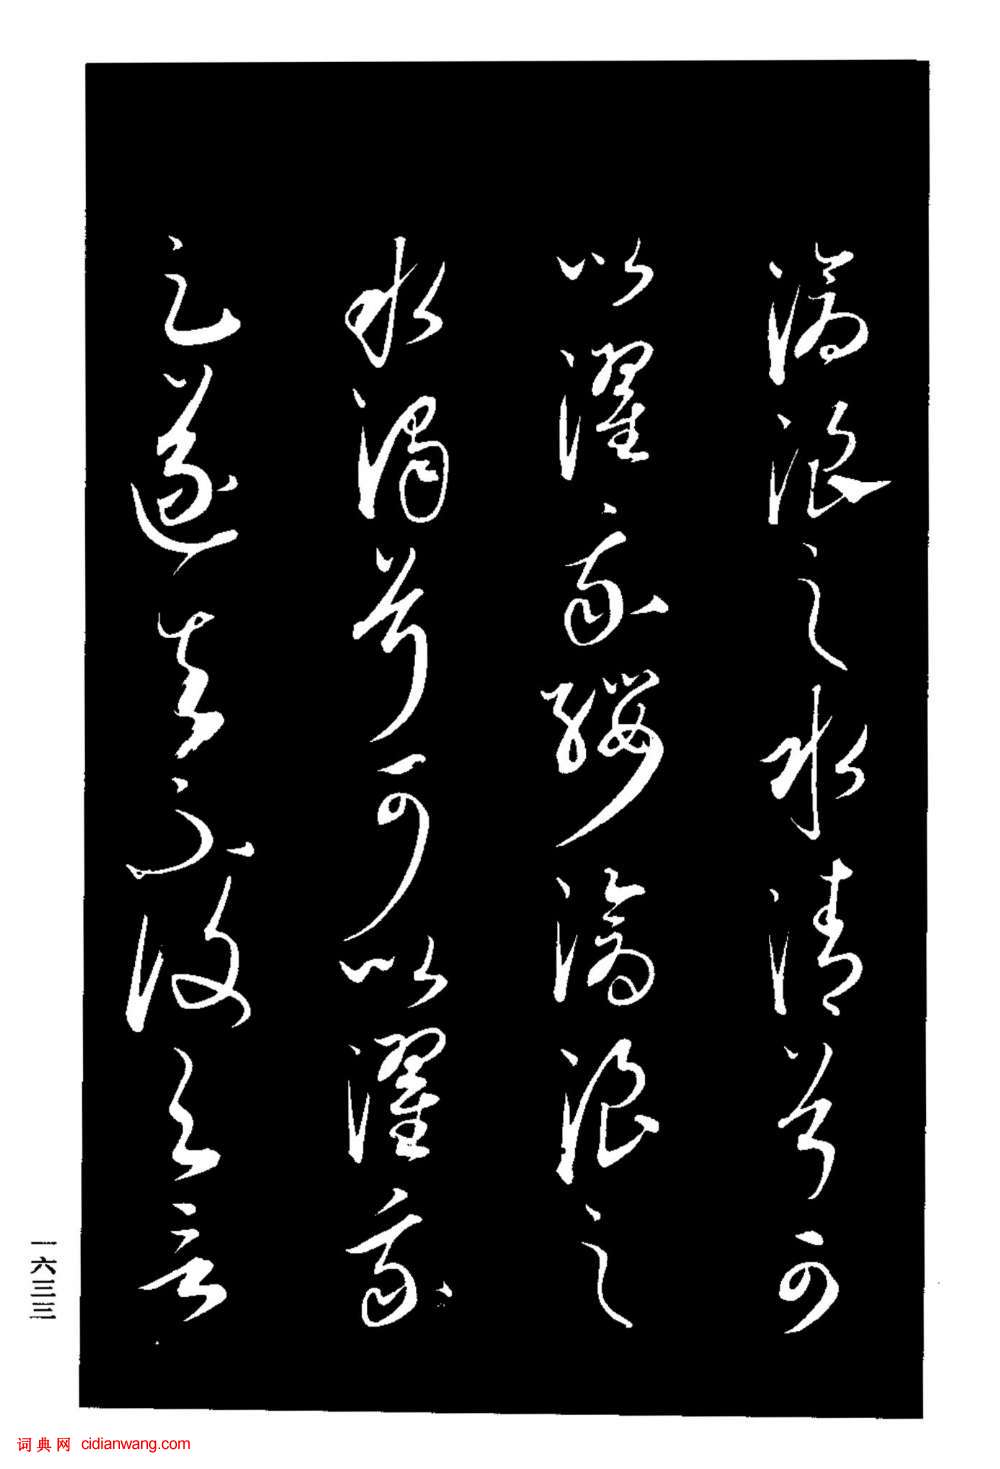 滄浪之水清兮可
以濯我纓滄浪之
水濁兮可以濯我
足遂去不復與言
一六三三
词典网 cidianwang.com